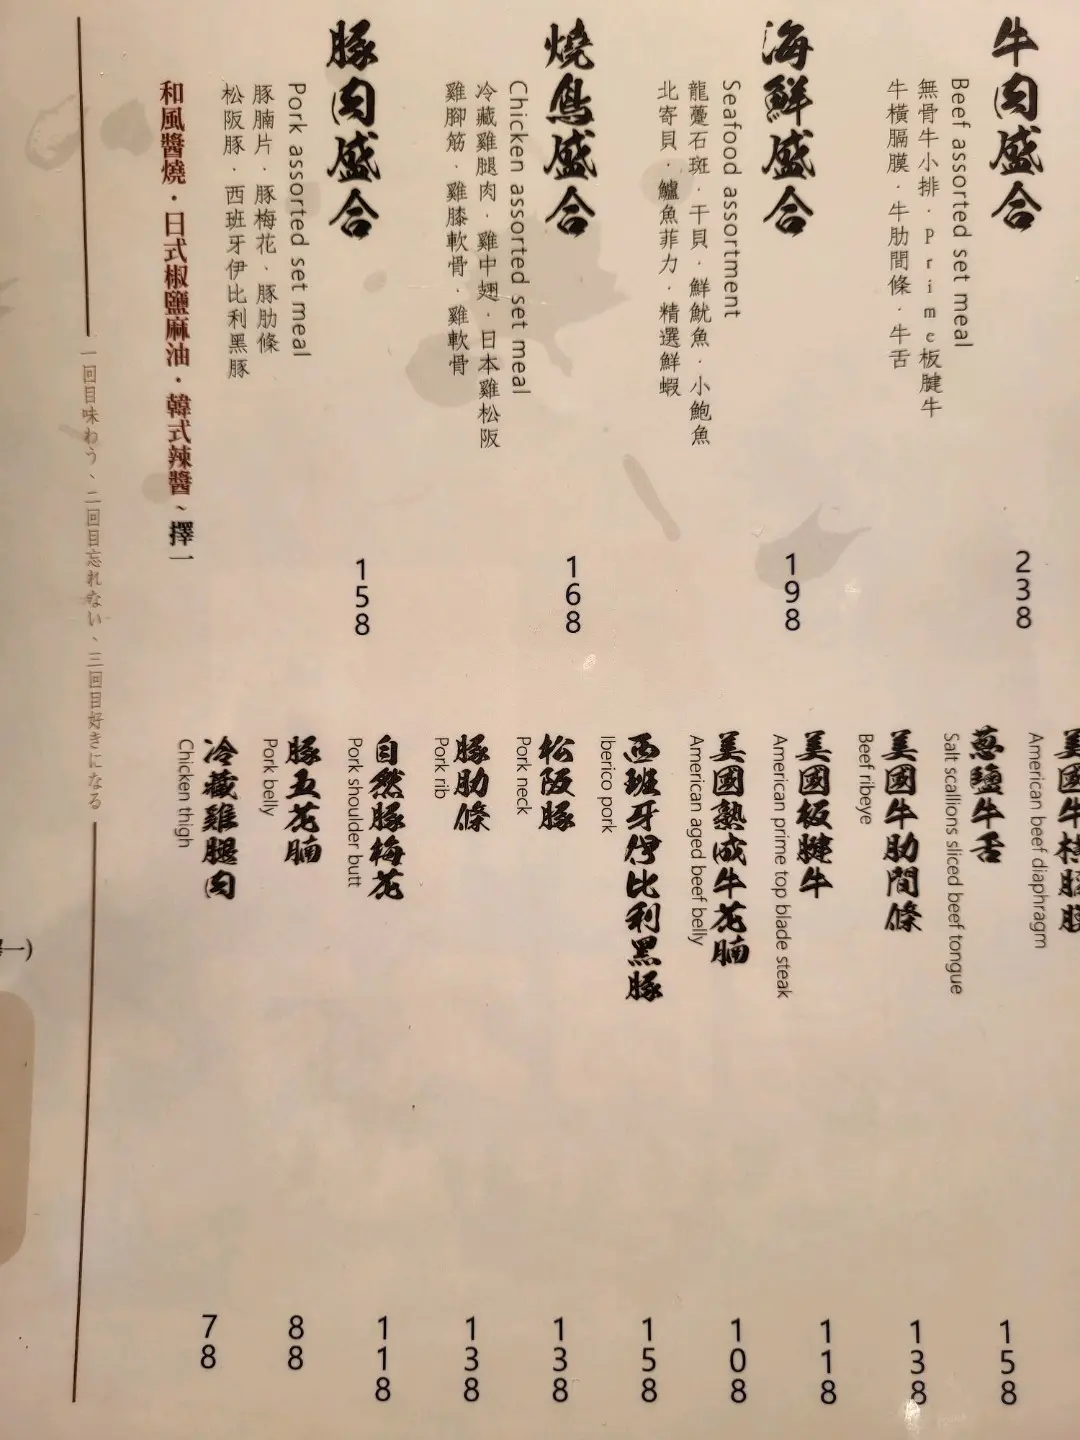 牛肉盛合
Beef assorted set meal
無骨牛小排．Prime板腱牛
牛橫膈膜．牛肋間條．牛舌
238
海鮮盛合
Seafood assortment
龍躉石斑．干貝．鮮魷魚．小鮑魚
北寄貝．鱸魚菲力．精選鮮蝦
198
燒鳥盛合
Chicken assorted set meal
冷藏雞腿肉．雞中翅．日本雞松阪
雞腳筋．雞膝軟骨．雞軟骨
168
豚肉盛合
Pork assorted set meal
豚腩片．豚梅花．豚肋條
松阪豚．西班牙伊比利黑豚
158
和風醬燒．日式椒鹽麻油．韓式辣醬、擇一
American beef diaphragm
蔥鹽牛舌
Salt scallions sliced beef tongue
158
美國牛肋間條
Beef ribeye
138
美國板腱牛
American prime top blade steak
118
美國熟成牛花腩
American aged beef belly
108
西班牙伊比利黑豚
Iberico pork
158
松阪豚
Pork neck
138
豚肋條
Pork rib
138
自然豚梅花
Pork shoulder butt
118
豚五花腩
Pork belly
88
冷藏雞腿肉
Chicken thigh
78
一回目味わう、二回目忘れない、三回目好きになる
一)